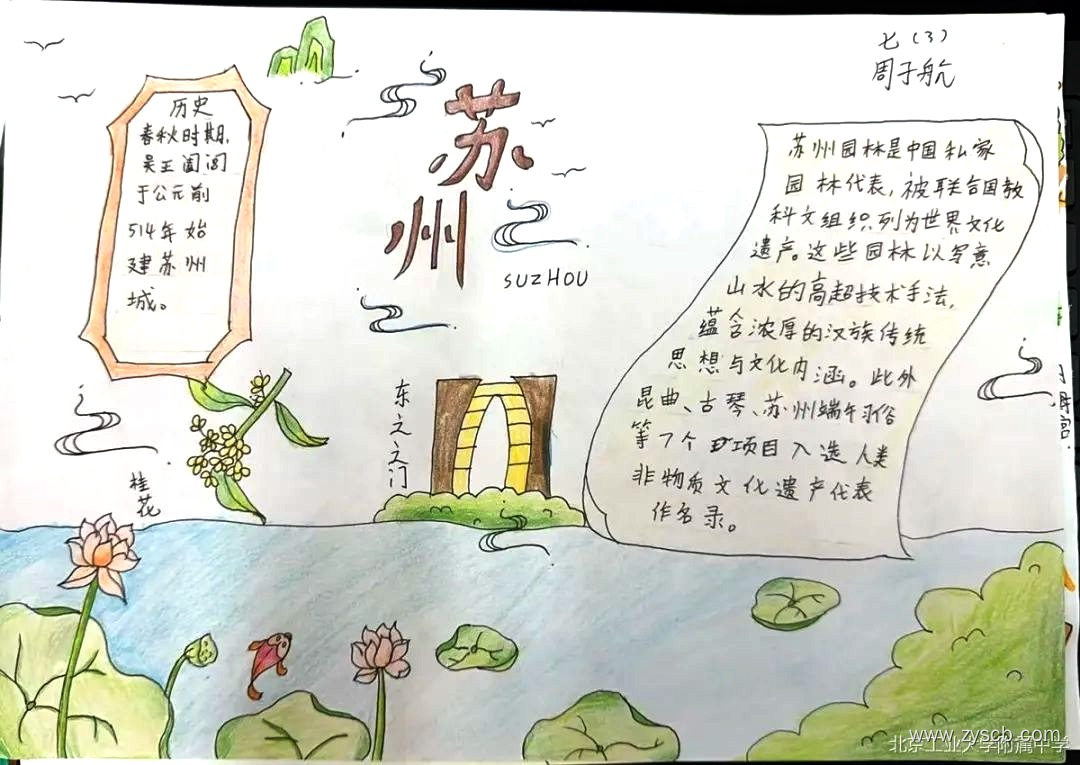 七(3)
周子航
历史
春秋时期,
吴王阖闾
于公元前
514年始
建苏州
城。
苏
州
SUZHOU
苏州园林是中国私家
园林代表,被联合国教
科文组织列为世界文化
遗产。这些园林以写意
山水的高超技术手法,
蕴含浓厚的汉族传统
思想与文化内涵。此外
昆曲、古琴、苏州端午习俗
等7个项目入选人类
非物质文化遗产代表
作名录。
东之门
桂花
www.zyscb.com
北京工业大学附属中学